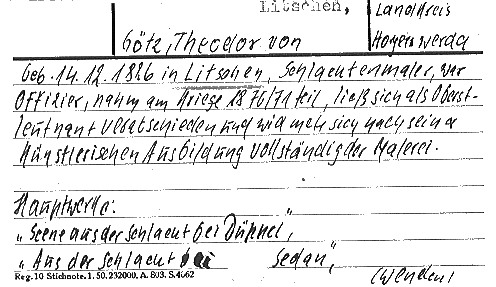 Litschen,
Landkreis
Götz, Theodor von
Hoyerswerda
Geb. 14.12.1826 in Litschen, Schlachtenmaler, war
Offizier, nahm am Kriege 1870/71 teil, ließ sich als Oberst-
leutnant verabschieden und widmete sich nach seiner
künstlerischen Ausbildung vollständig der Malerei.
Hauptwerke:
„Scene aus der Schlacht bei Düppel",
„Aus der Schlacht bei Sedan",
(Wenden)
Reg. 10 Stichnote. 1. 50. 232000. A. 803. S. 4662